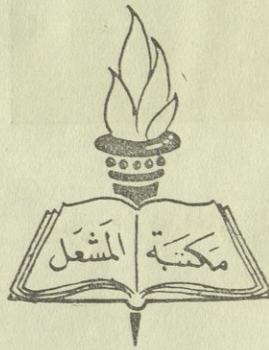 مكتبة المشعل